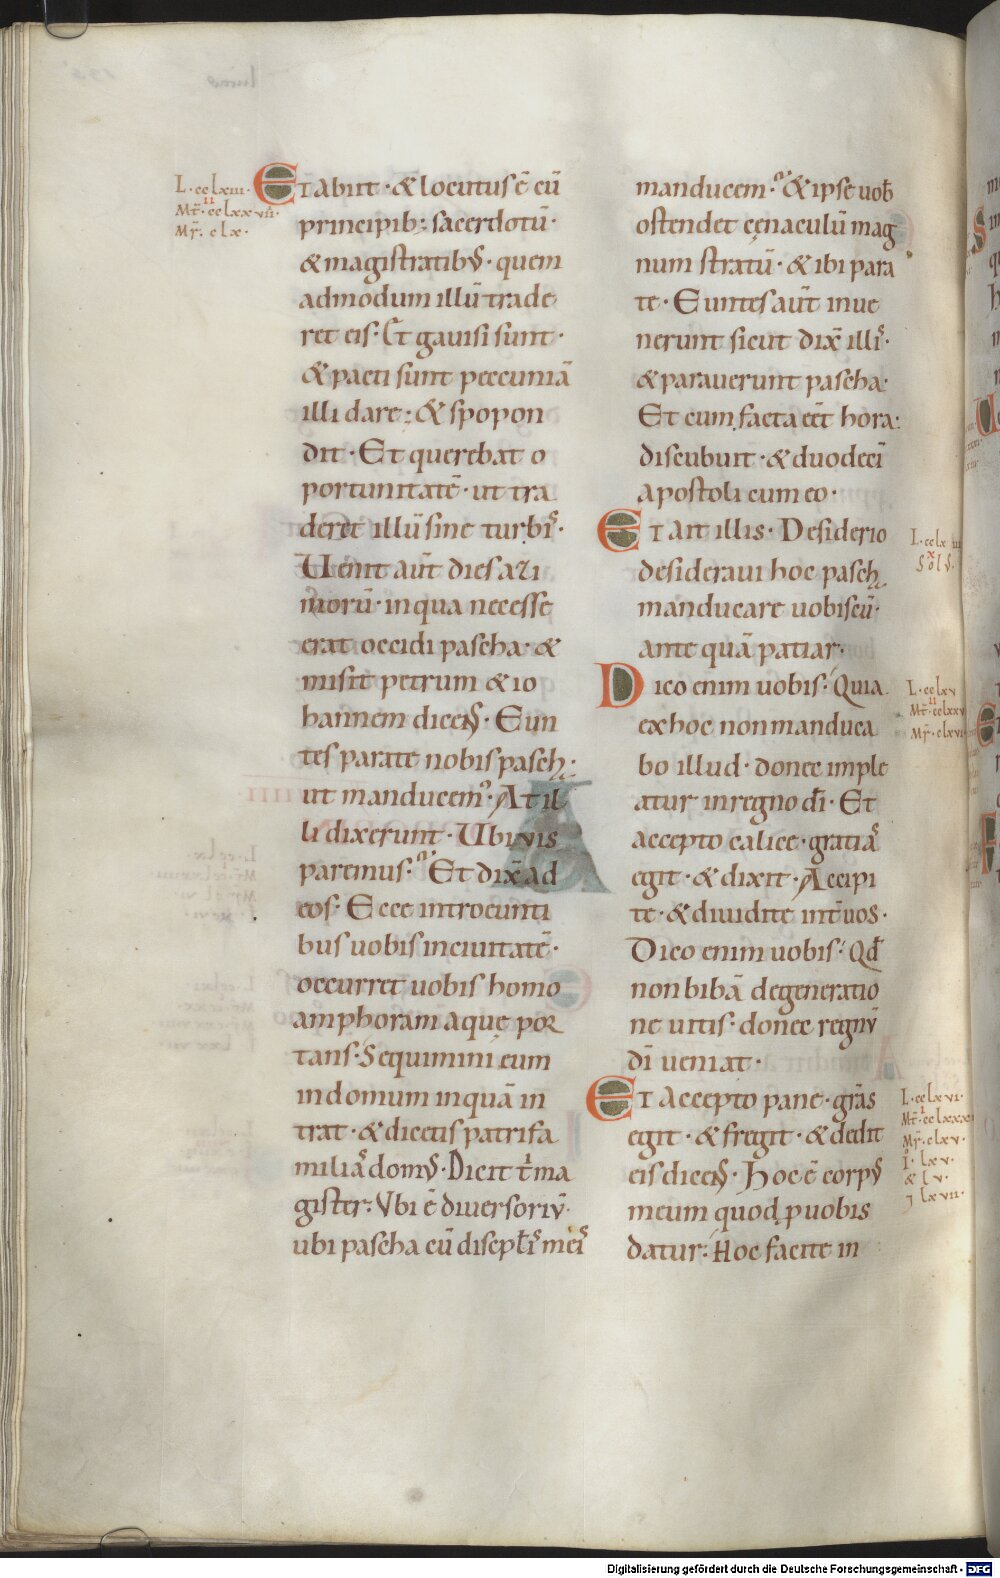 L·cclxiii·
Mt̄·cclxxvii·
Mr̄·clx·
ET abiit· & locutus ē cū
principib; sacerdotū·
& magistratibꝰ· quem
admodum illū trade
ret eis· Et gauisi sunt·
& pacti sunt peccuniā
illi dare; & spopon
dit· Et querebat o
portunitatē· ut tra
deret illū sine turbis·
Uenit aūt dies azi
morū· in qua necesse
erat occidi pascha· &
misit petrum & io
hannem dicens· Eun
tes parate nobis pasch·
ut manducemꝰ· At il
li dixerunt· Ubi uis
paremus· Et dix̄ ad
eos· Ecce introeunti
bus uobis in ciuitatē·
occurret uobis homo
amphoram aque por
tans· Sequimini eum
in domum in quā in
trat· & dicetis patrifa
miliās domꝰ· Dicit t̄ ma
gister; Vbi ē diuersoriū·
ubi pascha cū discipl̄is meis
manducem· & ipse uob̄
ostendet cenaculū mag
num stratū· & ibi para
te· Euntes aūt inue
nerunt sicut dix̄ illis·
& parauerunt pascha·
Et cum facta eēt hora:
discubuit· & duodecī
apostoli cum eo·
ET ait illis· Desiderio
desideraui hoc pasch
manducare uobiscū·
ante quā patiar·
Dico enim uobis· Quia
ex hoc non manduca
bo illud· donec imple
atur in regno dī· Et
accepto calice· gratias
egit· & dixit· Accipi
te· & diuidite int̄ uos·
Dico enim uobis· Qđ
non bibā de generatio
ne uitis· donec regnū
dī ueniat·
ET accepto pane· grās
egit· & fregit· & dedit
eis dicens· Hoc ē corpꝰ
meum quod p uobis
datur; Hoc facite in
L·cclxv
Mt̄·cclxxv
Mr̄·clxvi
L·cclxvi·
Mr̄·clxv·
I·lxv·
&lv·
Digitalisierung gefördert durch die Deutsche Forschungsgemeinschaft - DFG